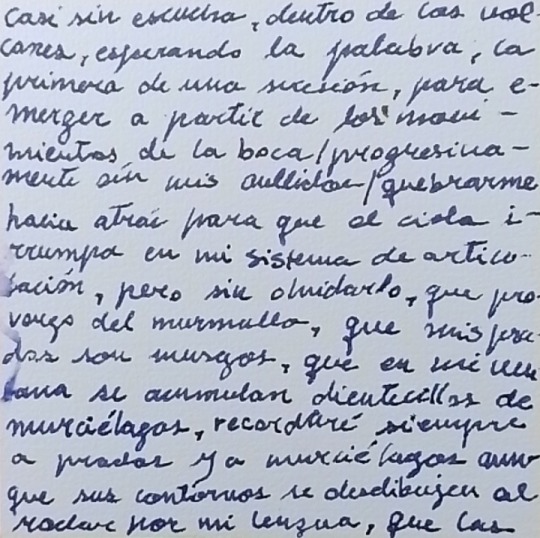 casi sin escucha, dentro de los vol-
canes, esperando la palabra, la
primera de una sucesión, para e-
merger a partir de los movi-
mientos de la boca/progresiva-
mente sin mis aullidos/quebrarme
hacia atrás para que el cielo i-
rrumpa en mi sistema de articu-
lación, pero sin olvidarlo, que pro-
vengo del murmullo, que mis pra-
dos son musgos, que en mi ven
tana se acumulan dientecillos de
murciélagos, recordaré siempre
a prados y a murciélagos aun
que sus contornos se desdibujen al
rodar por mi lengua, que las